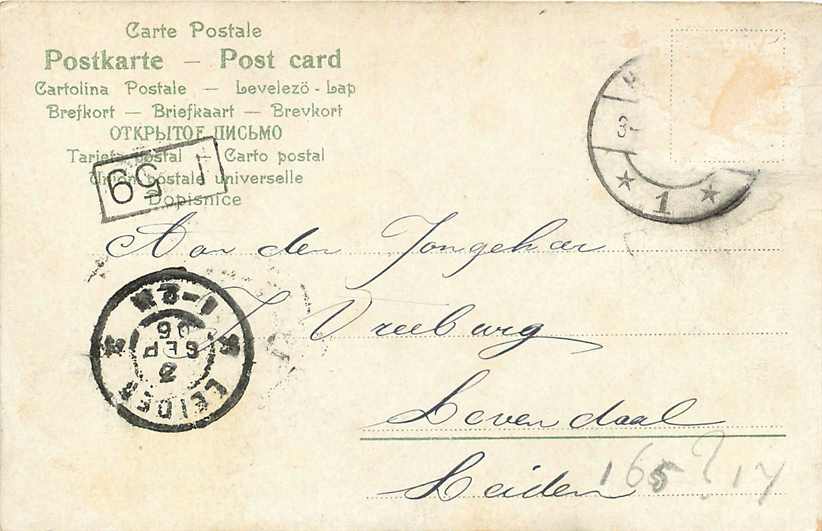 Carte Postale
Postkarte — Post card
Cartolina Postale — Levelezö-Lap
Brefkort — Briefkaart — Brevkort
ОТКРЫТОЕ ПИСЬМО
Tarjeta postal — Carto postal
Union postale universelle
Dopisnice
I 59
3-
* 1 *
Aan den Jongeheer
J Vreeburg
Levendaal
Leiden
165 ? 17
LEIDEN
3
SEP
06
1-2N